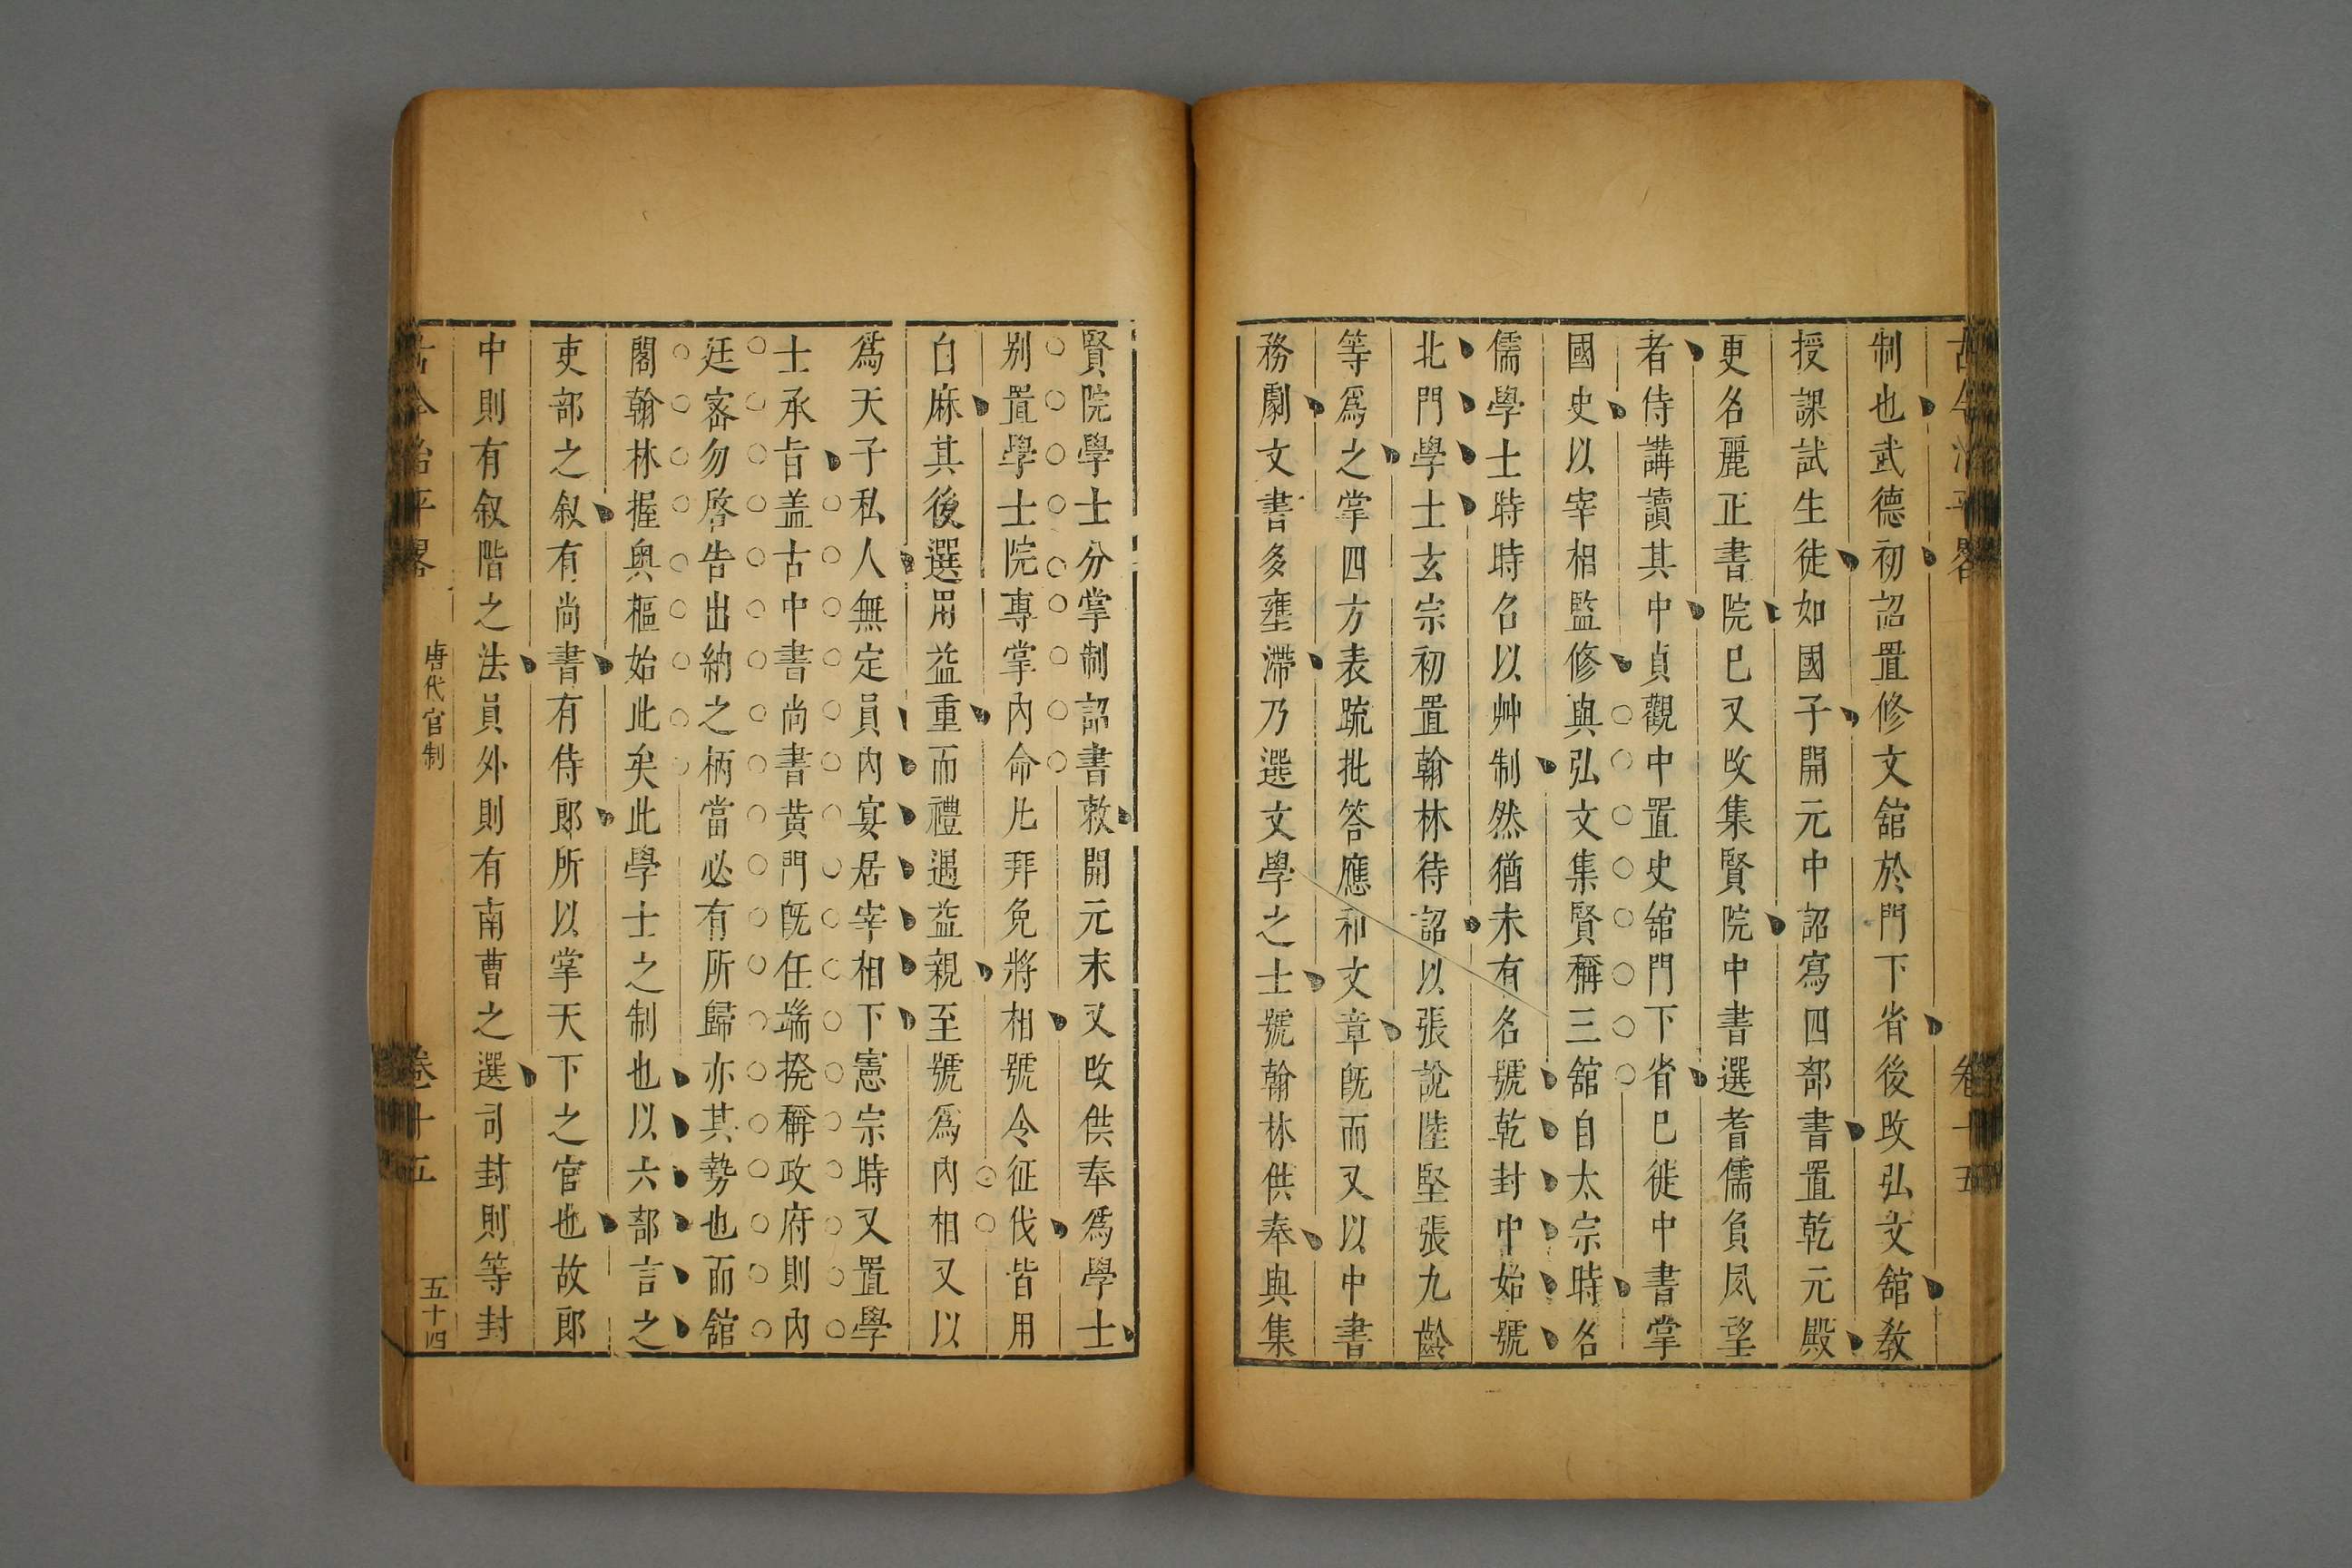 古今治平畧
卷十五
制也武德初詔置修文舘於門下省後改弘文舘教
授課試生徒如國子開元中詔寫四部書置乾元殿
更名麗正書院已又改集賢院中書選耆儒負夙望
者侍講讀其中貞觀中置史舘門下省已徙中書掌
國史以宰相監修與弘文集賢稱三舘自太宗時名
儒學士時時召以艸制然猶未有名號乾封中始號
北門學士玄宗初置翰林待詔以張說陸堅張九齡
等爲之掌四方表疏批答應和文章旣而又以中書
務劇文書多壅滯乃選文學之士號翰林供奉與集
賢院學士分掌制詔書敕開元末又改供奉爲學士
别置學士院專掌內命凡拜免將相號令征伐皆用
白麻其後選用益重而禮遇益親至號爲內相又以
爲天子私人無定員內宴居宰相下憲宗時又置學
士承旨盖古中書尚書黄門旣任端揆稱政府則內
廷密勿啓告出納之柄當必有所歸亦其勢也而舘
閣翰林握與樞始此矣此學士之制也以六部言之
吏部之叙有尚書有侍郎所以掌天下之官也故郎
中則有叙階之法員外則有南曹之選司封則等封
古今治平畧
唐代官制
卷十五
五十四